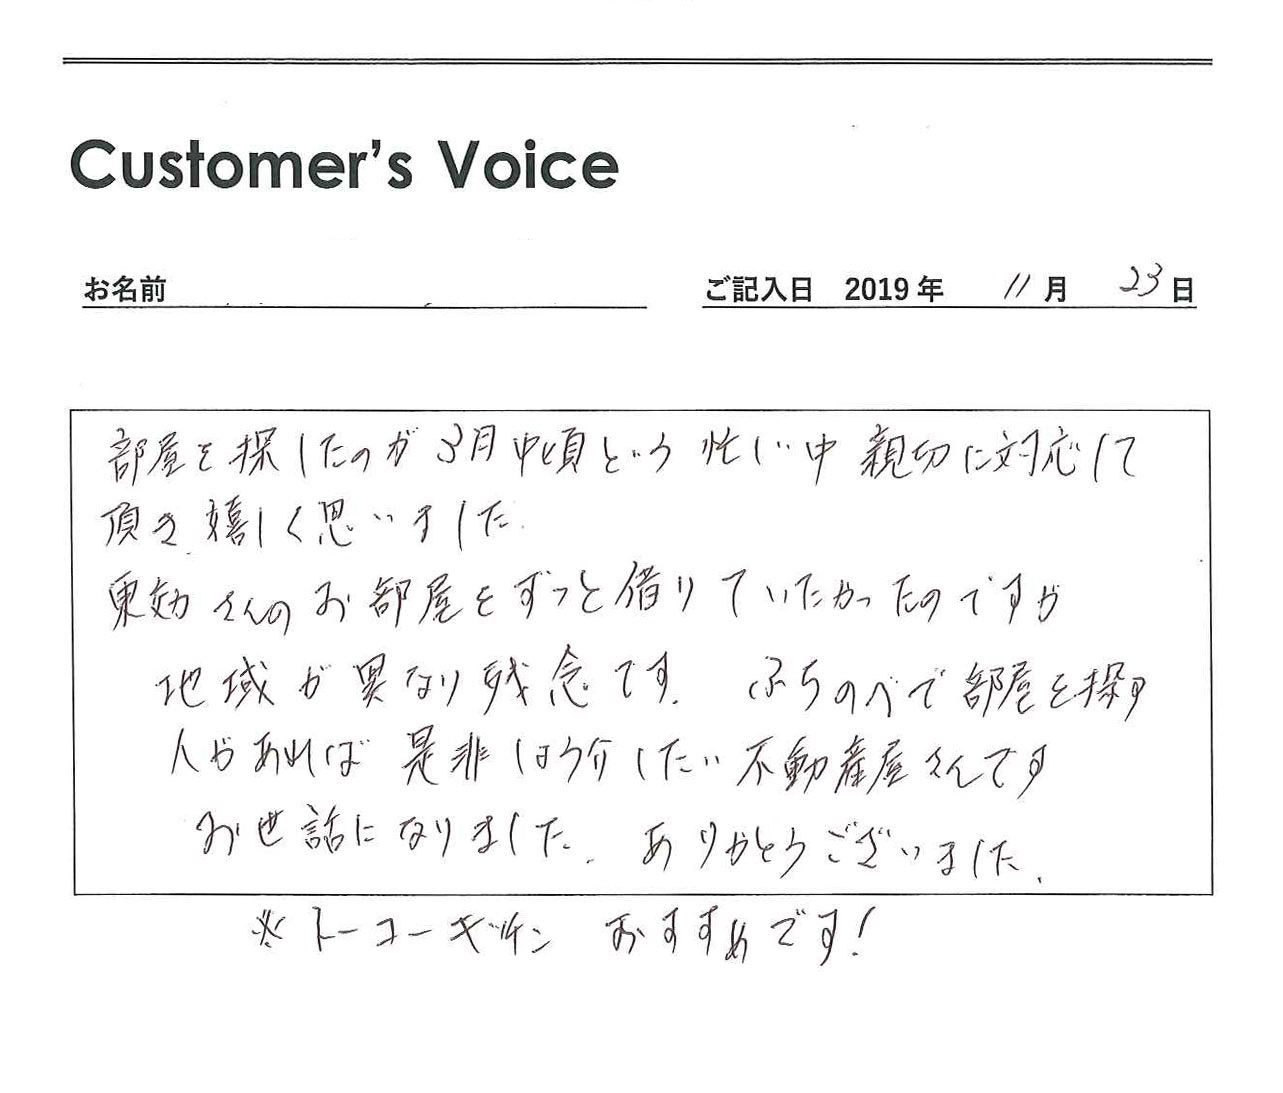 Customer's Voice
お名前
ご記入日 2019年 11月 23日
部屋を探したのが3月中頃という忙しい中 親切に対応して
頂き嬉しく思いました.
東効さんのお部屋をずっと借りていたかったのですが
地域が異なり残念です. ふちのべで部屋を探す
人があれば是非しょう介したい不動産屋さんです
お世話になりました. ありがとうございました.
※トーコーキッチン おすすめです!